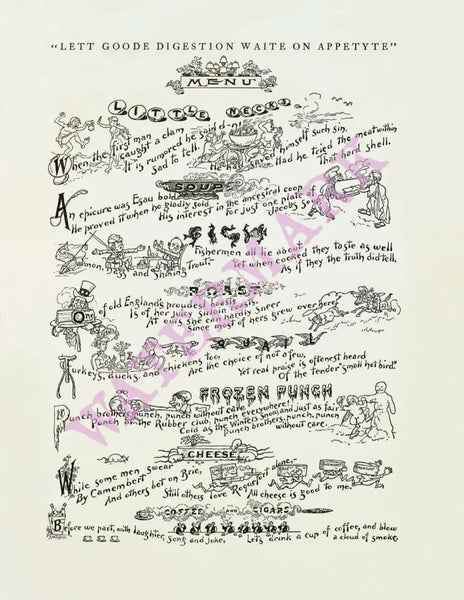 "LETT GOODE DIGESTION WAITE ON APPETYTE"
MENU
LITTLE NECKS
When the first man caught a clam
It is rumored he said d-n!
Sad to tell.
He has saved himself such sin,
Had he tried the meat within
That hard shell.
SOUP
An epicure was Esau bold
He proved it when he gladly sold
His interest in the ancestral coop
For just one plate of
Jacob's Soup
FISH
Fishermen all lie about
Salmon, Bass and Shining Trout-
Yet when cooked they taste as well
As if they the truth did tell.
ROAST
One of old England's proudest boasts is.
Is of her juicy Sirloin roasts
At ours she can hardly sneer
Since most of hers grew over here.
QUAIL
Turkeys, ducks, and chickens too;
Are the choice of not a few.
Yet real praise is oftenest heard
Of the tender "small hot bird."
FROZEN PUNCH
Punch brothers, punch, punch with care
Punch or the Rubber club, punch everywhere!
Cold as the Winter's Snow, and just as fair
Punch brothers, punch, punch
without care.
CHEESE
While some men swear
By Camembert
And others bet on Brie,
Still others love Roquefort alone,-
All cheese is good to me.
COFFEE AND CIGARS
Before we part, with laughter, song and joke,
Let's drink a cup of coffee, and blow
a cloud of smoke.
OVER
WATERMARK